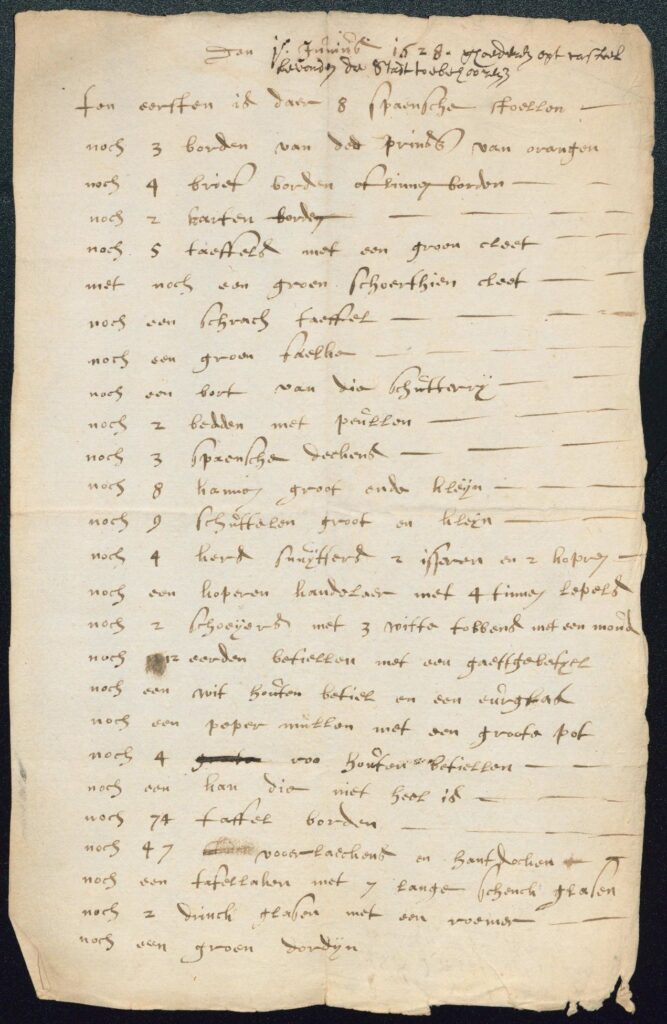 den 1 Junius 1628. goederen opt casteel
bevonden de Stadt toebehoorende
Ten eersten is daer 8 spaensche stoellen
noch 3 borden van des prins van orangen
noch 4 brief borden of linnen borden
noch 2 karten borden
noch 5 taeffels met een groen cleet
met noch een groen schoerthien cleet
noch een schrach taeffel
noch een groen
noch een bort van die schutterry
noch 2 bedden met peullen
noch 3 spaensche deekens
noch 8 kannen groot ende kleijn
noch 9 schuttelen groot en kleijn
noch 4 kers snuijtters 2 isseren en 2 kopren
noch een koperen kandelaer met 4 tinnen lepels
noch 2 met 3 witte tobbens met een
noch 12 eerden betiellen met een
noch een wit houten betiel en een
noch een peper mullen met een groote pot
noch 4 roo houten betiellen
noch een kan die niet heel is
noch 74 taffel borden
noch 47 voorlaeckens en hantdocken
noch een tafellaken met 7 lange schenck glasen
noch 2 drinck glasen met een roemer
noch een groen dordijn